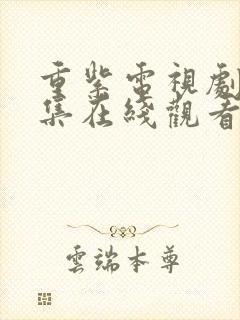 重紫電視劇
集在綫觀看
雲端本尊